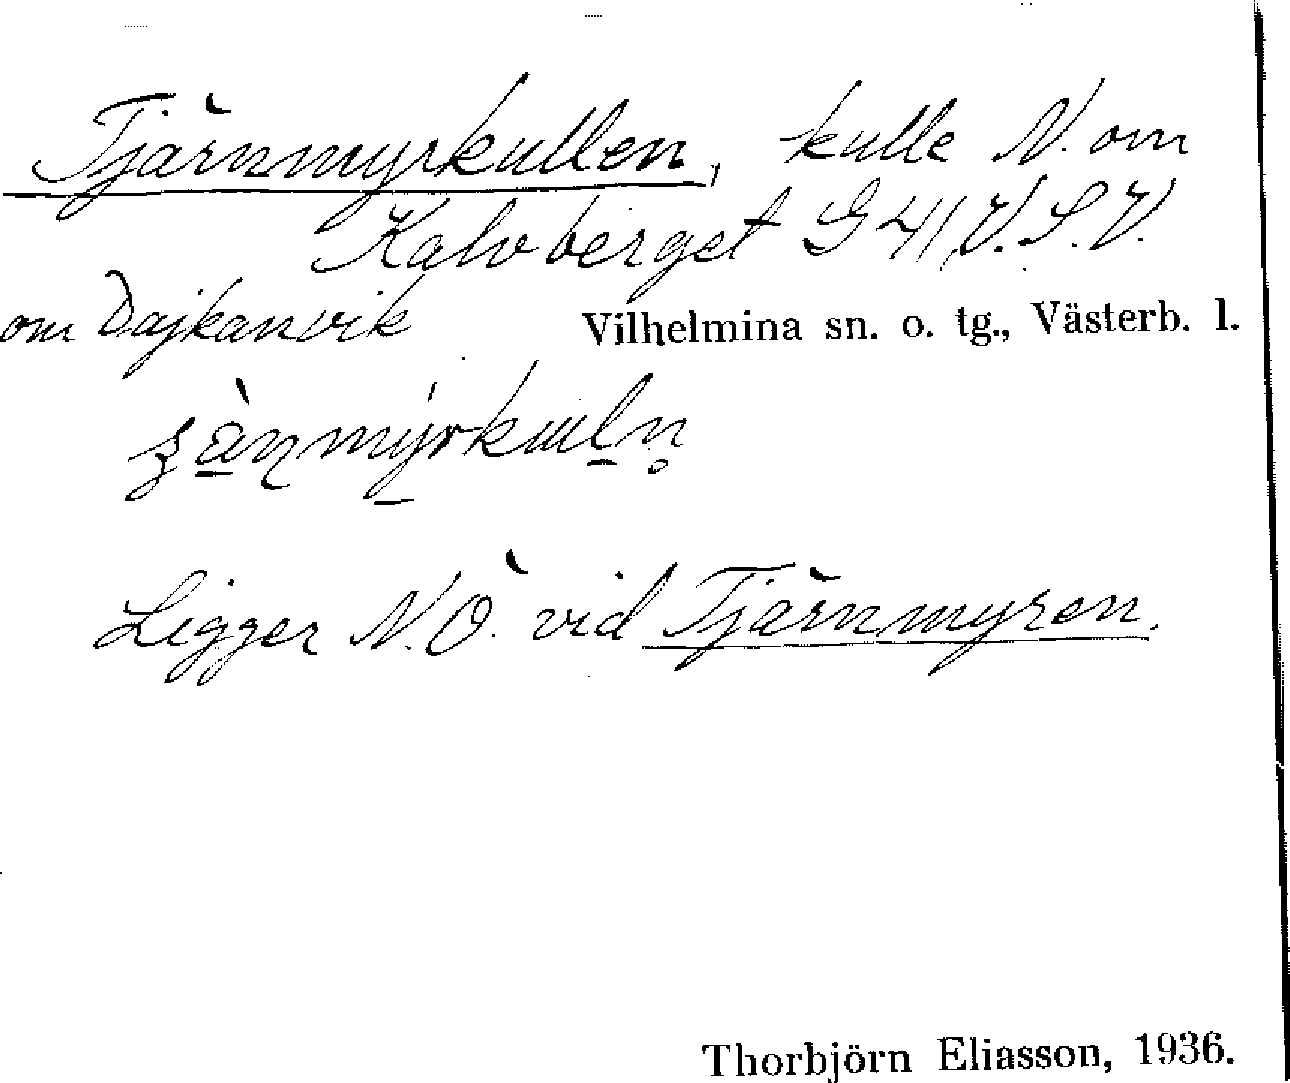 Tjärnmyrkullen, kulle N. om
Kalvberget G 41, V.S.V.
om Dajkanvik Vilhelmina sn. o. tg., Västerb. l.
Ligger N.Ö. vid Tjärnmyren.
Thorbjörn Eliasson, 1936.